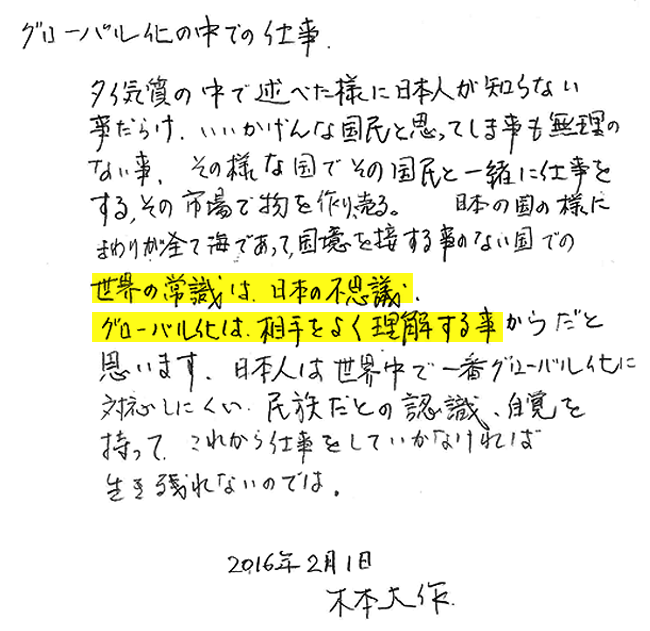 グローバル化の中での仕事.
タイ気質の中で述べた様に日本人が知らない
事だらけ、いいかげんな国民と思ってしま事も無理の
ない事、その様な国でその国民と一緒に仕事を
する,その市場で物を作り、売る。 日本の国の様に
まわりが全て海であって、国境を接する事のない国での
世界の常識は、日本の不思議、
グローバル化は、相手をよく理解する事からだと
思います、日本人は世界中で一番グローバル化に
対応しにくい、民族だとの認識、自覚を
持って、これから仕事をしていかなければ
生き残れないのでは。
2016年2月1日
木本大作.